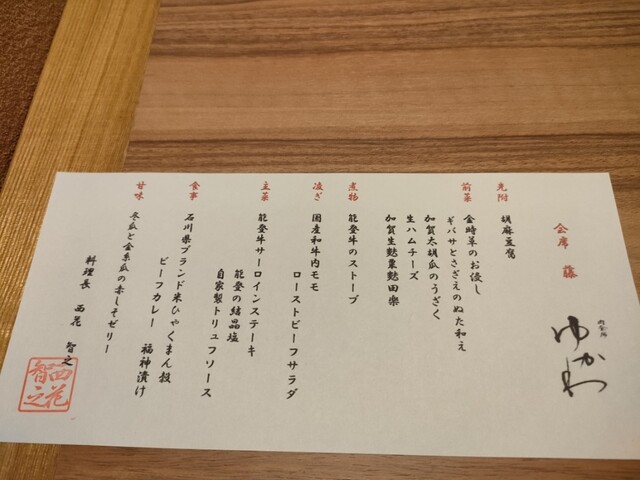 肉会席
ゆかわ
会席 藤
先附 胡麻豆腐
前菜 金時草のお浸し
ギバサとさざえのぬた和え
加賀太胡瓜のうざく
生ハムチーズ
加賀生麩粟麩田楽
煮物 能登牛のスープ
凌ぎ 国産和牛内モモ
ローストビーフサラダ
主菜 能登牛サーロインステーキ
能登の結晶塩
自家製トリュフソース
食事 石川県ブランド米ひゃくまん穀
ビーフカレー 福神漬け
甘味 冬瓜と金糸瓜の赤しそゼリー
料理長 西花 智之
西花
智之